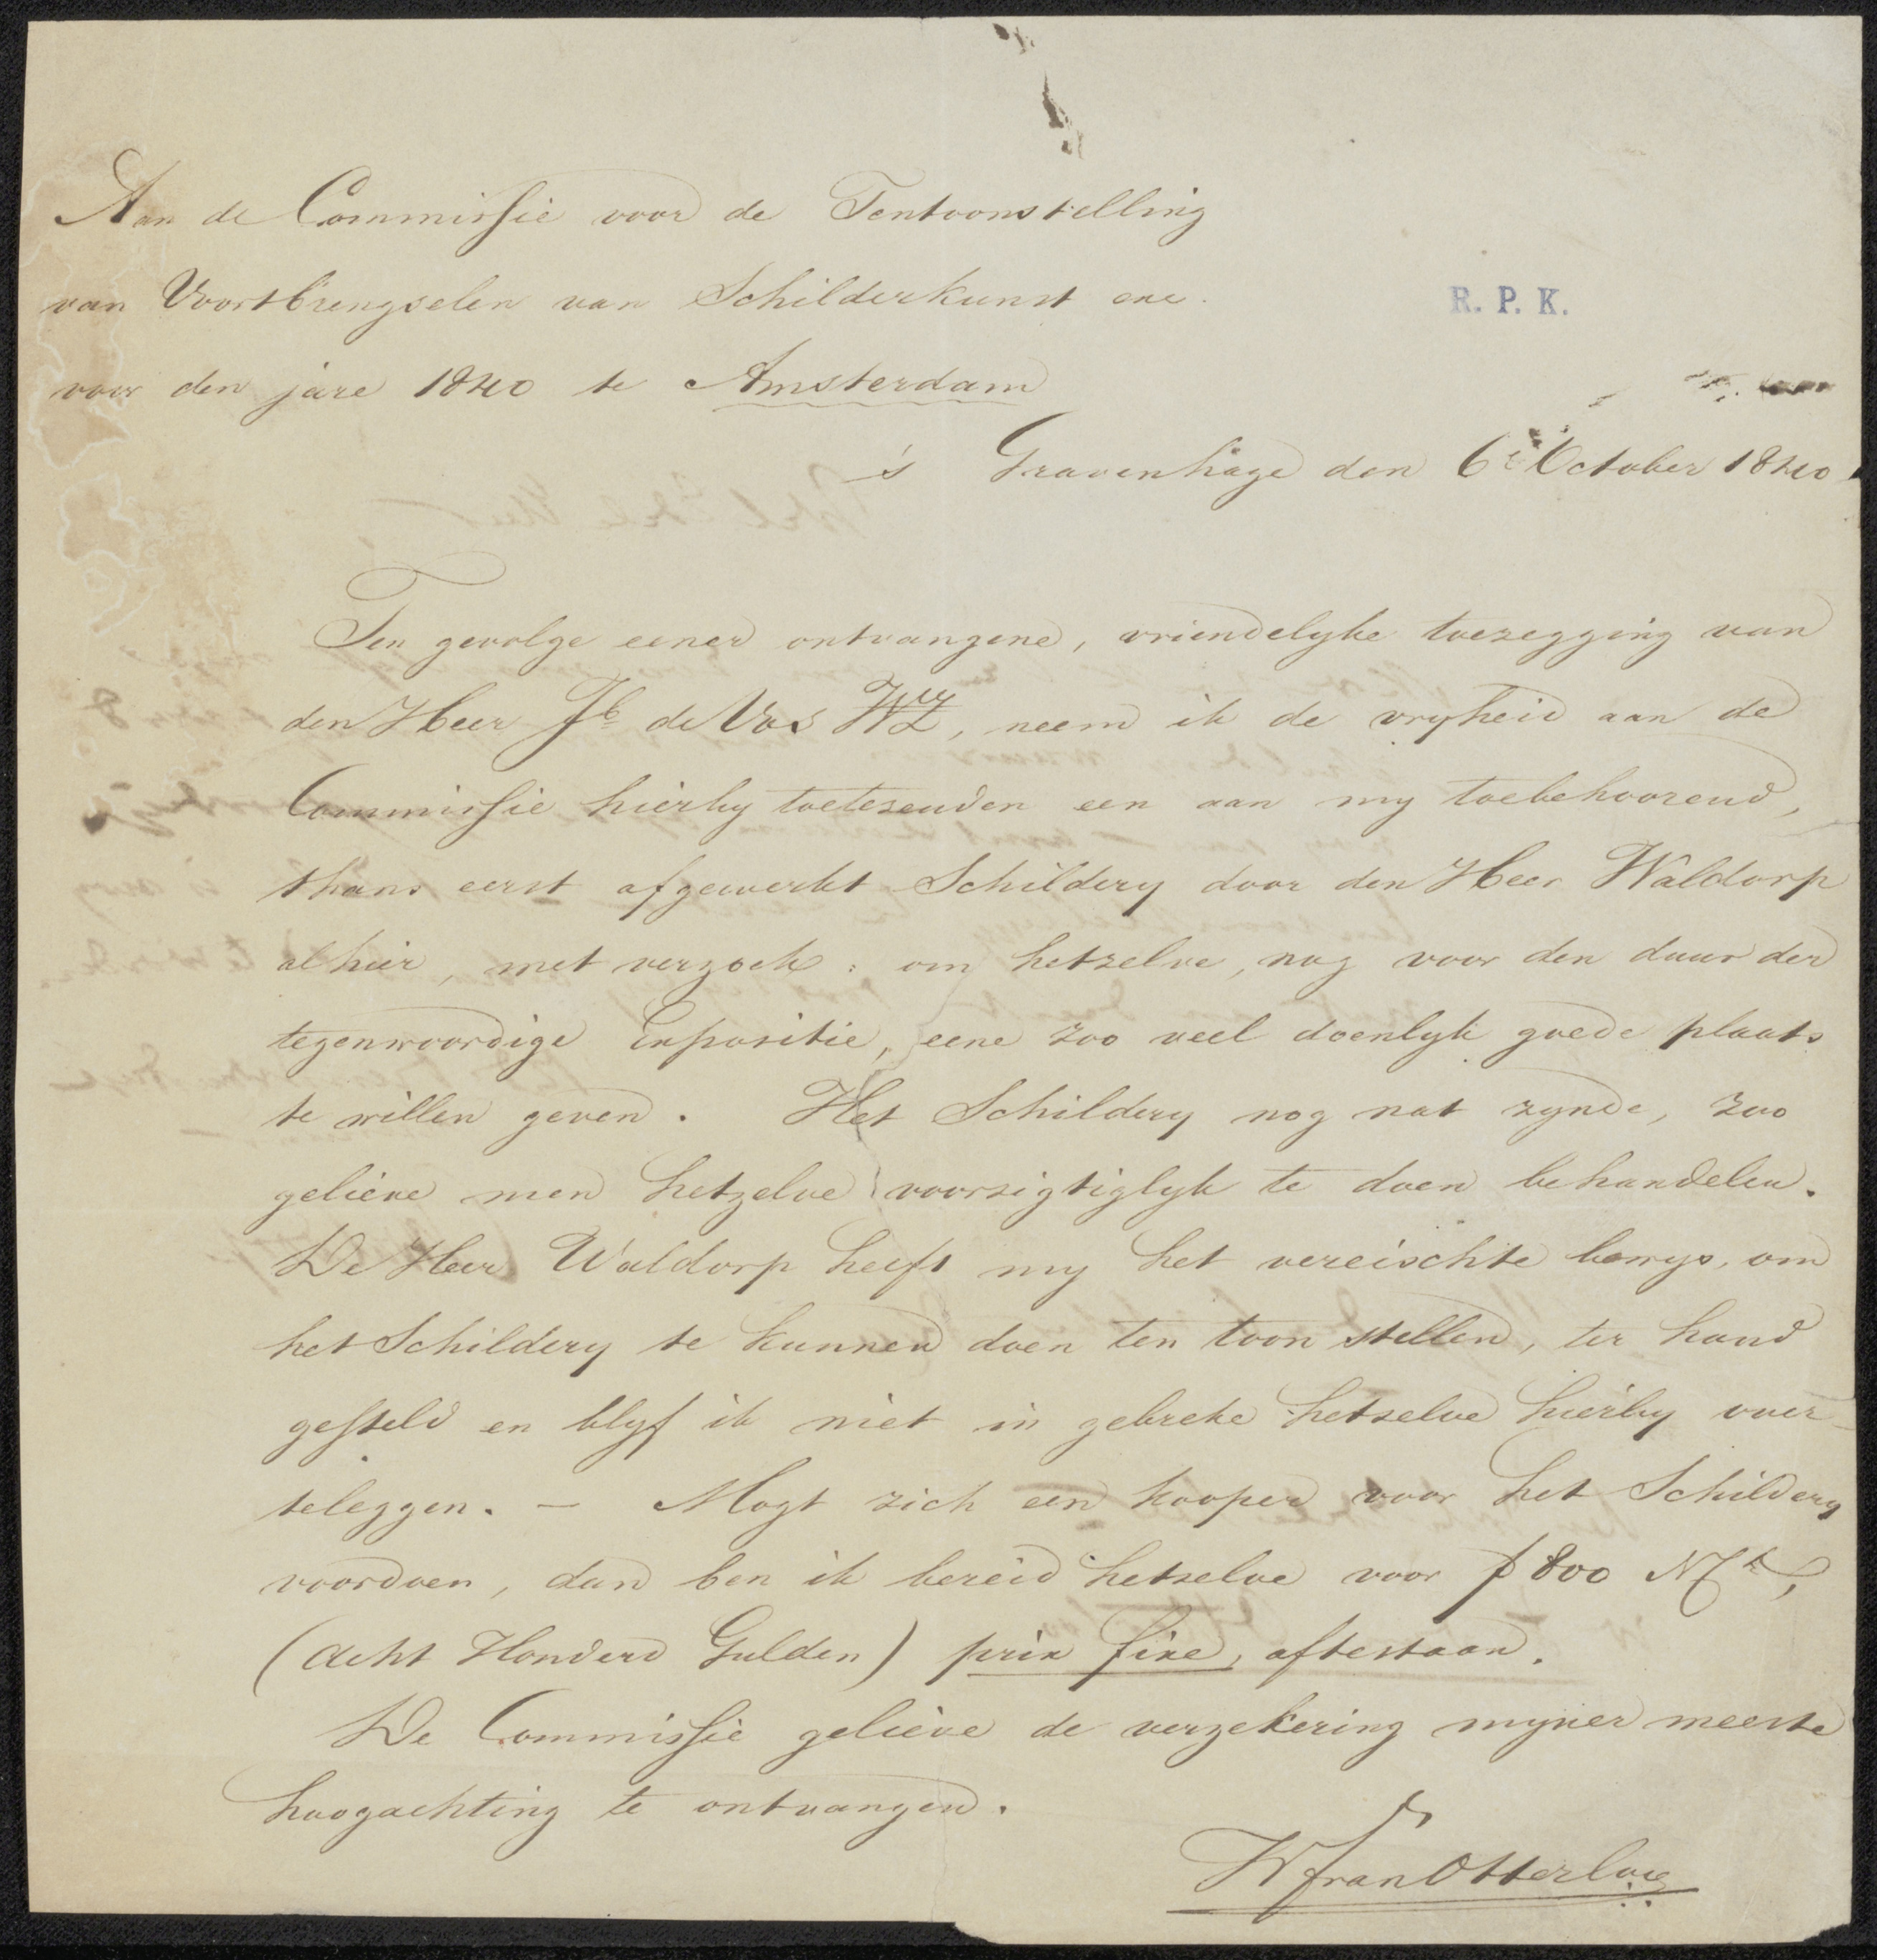 Aan de Commissie voor de Tentoonstelling
van Voortbrengselen van Schilderkunst enz.
R. P. K.
voor den jare 1840 te Amsterdam
's Gravenhage den 6e October 1840
Ten gevolge eener ontvangene, vriendelyke toezegging van
den Heer Jb de Vos WZ, neem ik de vryheid aan de
Commissie hierby toetezenden een aan my toebehoorend,
thans eerst afgewerkt Schildery door den Heer Waldorp
alhier, met verzoek: om hetzelve, nog voor den duur der
tegenwoordige Expositie, eene zoo veel doenlyk goede plaats
te willen geven. Het Schildery nog nat zynde, zoo
gelieve men hetzelve voorzigtiglyk te doen behandelen.
De Heer Waldorp heeft my het vereischte bewys, om
het Schildery te kunnen doen ten toon stellen, ter hand
gesteld en blyf ik niet in gebreke hetzelve hierby over-
teleggen. — Mogt zich een kooper voor het Schildery
voordoen, dan ben ik bereid hetzelve voor f 800 Nt,
(acht Honderd Gulden) prix fixe, aftestaan.
De Commissie gelieve de verzekering myner meeste
hoogachting te ontvangen.
W J van Otterloo